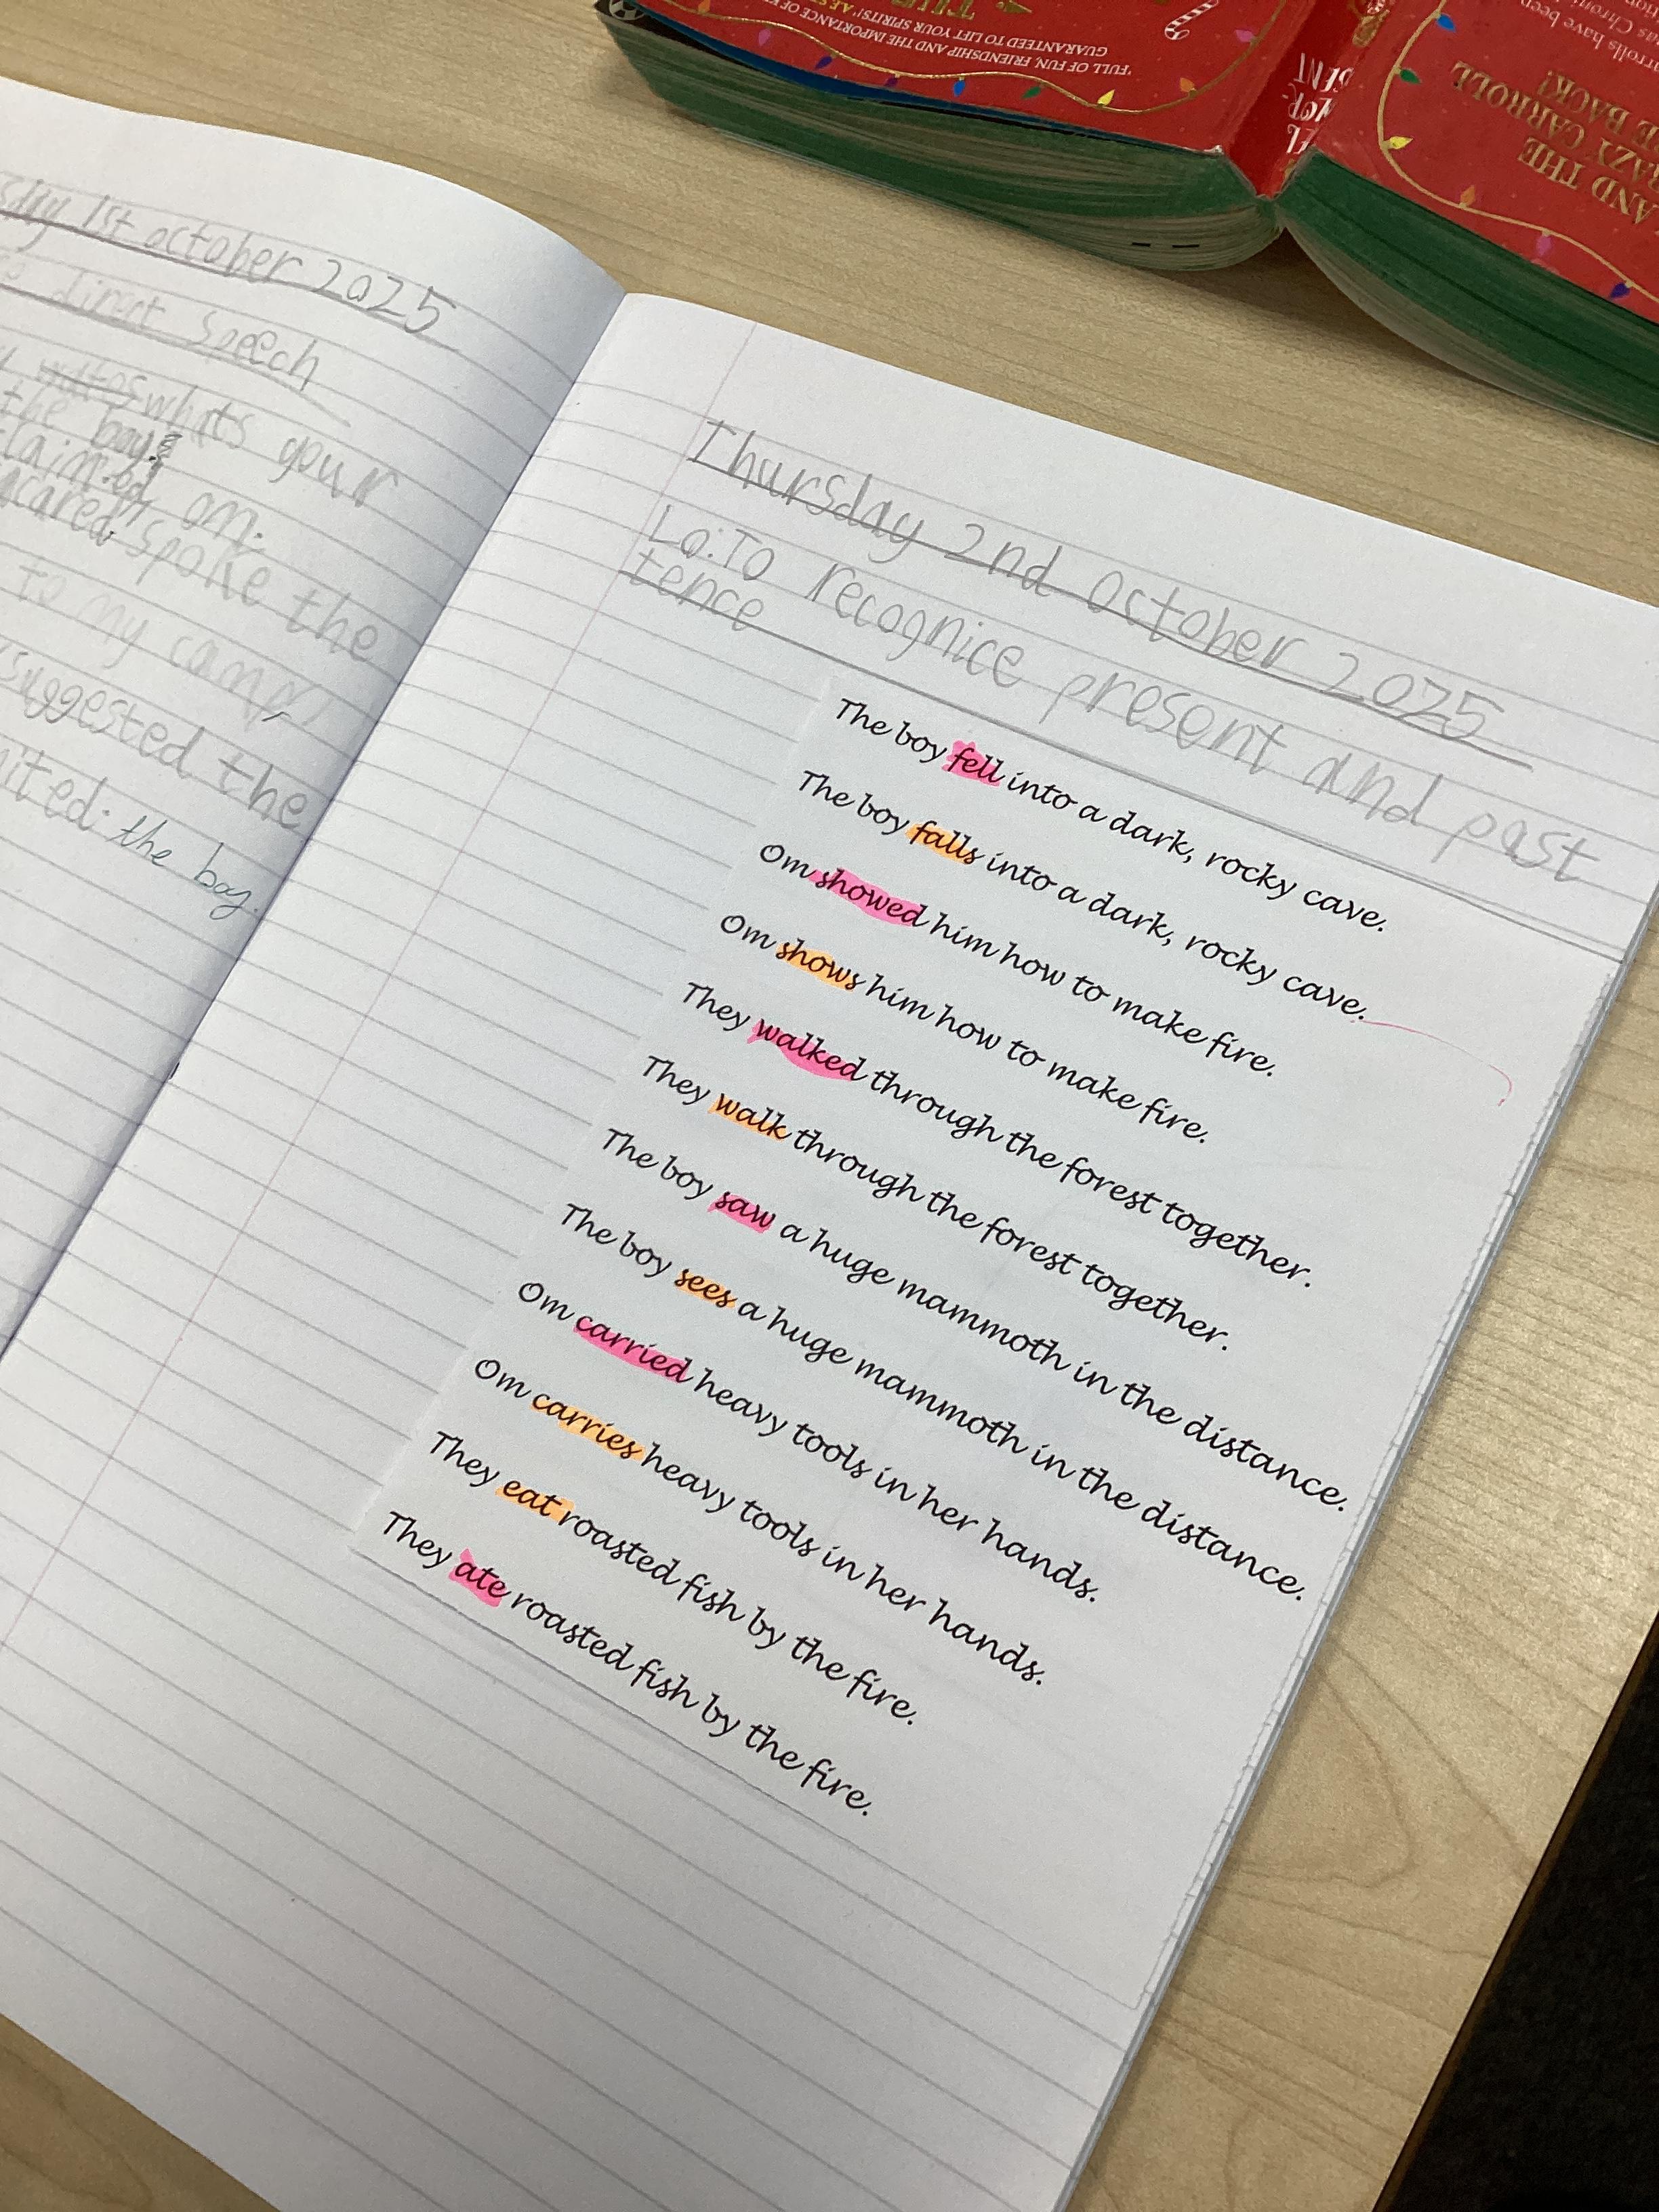 1st october 2025
direct speech
whats your
the boy
on.
scared spoke the
to my camp
suggested the
the boy.
Thursday 2nd october 2025
Lo: To recognice present and past
tence
The boy fell into a dark, rocky cave.
The boy falls into a dark, rocky cave.
Om showed him how to make fire.
Om shows him how to make fire.
They walked through the forest together.
They walk through the forest together.
The boy saw a huge mammoth in the distance.
The boy sees a huge mammoth in the distance.
Om carried heavy tools in her hands.
Om carries heavy tools in her hands.
They eat roasted fish by the fire.
They ate roasted fish by the fire.
'FULL OF FUN, FRIENDSHIP AND THE IMPORTANCE OF
GUARANTEED TO LIFT YOUR SPIRITS!'
AND THE
CARROLL
BACK!
have been